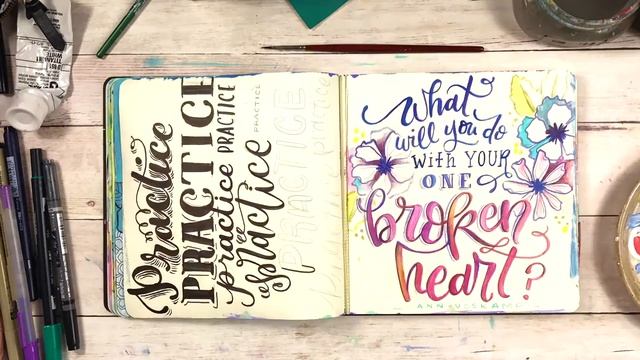 Practice
PRACTICE
practice
PRACTICE
practice
PRACTICE
PRACTICE
practice
What
will you do
with YOUR
ONE
broken
heart?
TITANIUM
WHITE